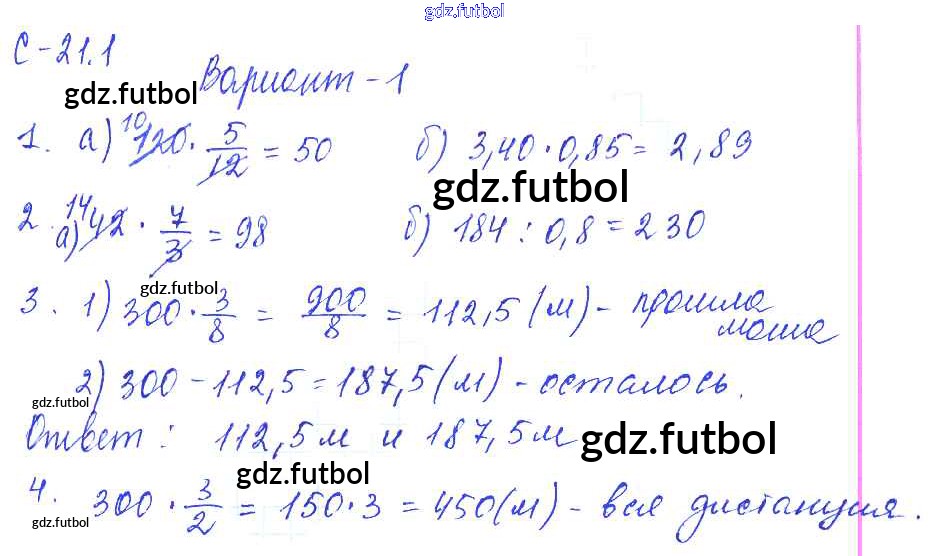 gdz.futbol
С-21.1
Вариант-1
gdz.futbol
1. а) 10 120 · 5/12 = 50 б) 3,40 · 0,85 = 2,89
gdz.futbol
2. а) 14 42 · 7/3 = 98 б) 184 : 0,8 = 230
gdz.futbol
3. 1) 300 · 3/8 = 900/8 = 112,5 (м) - прошла маша
2) 300 - 112,5 = 187,5 (м) - осталось.
gdz.futbol
Ответ: 112,5 м и 187,5 м
gdz.futbol
gdz.futbol
4. 300 · 3/2 = 150 · 3 = 450 (м) - вся дистанция.
gdz.futbol